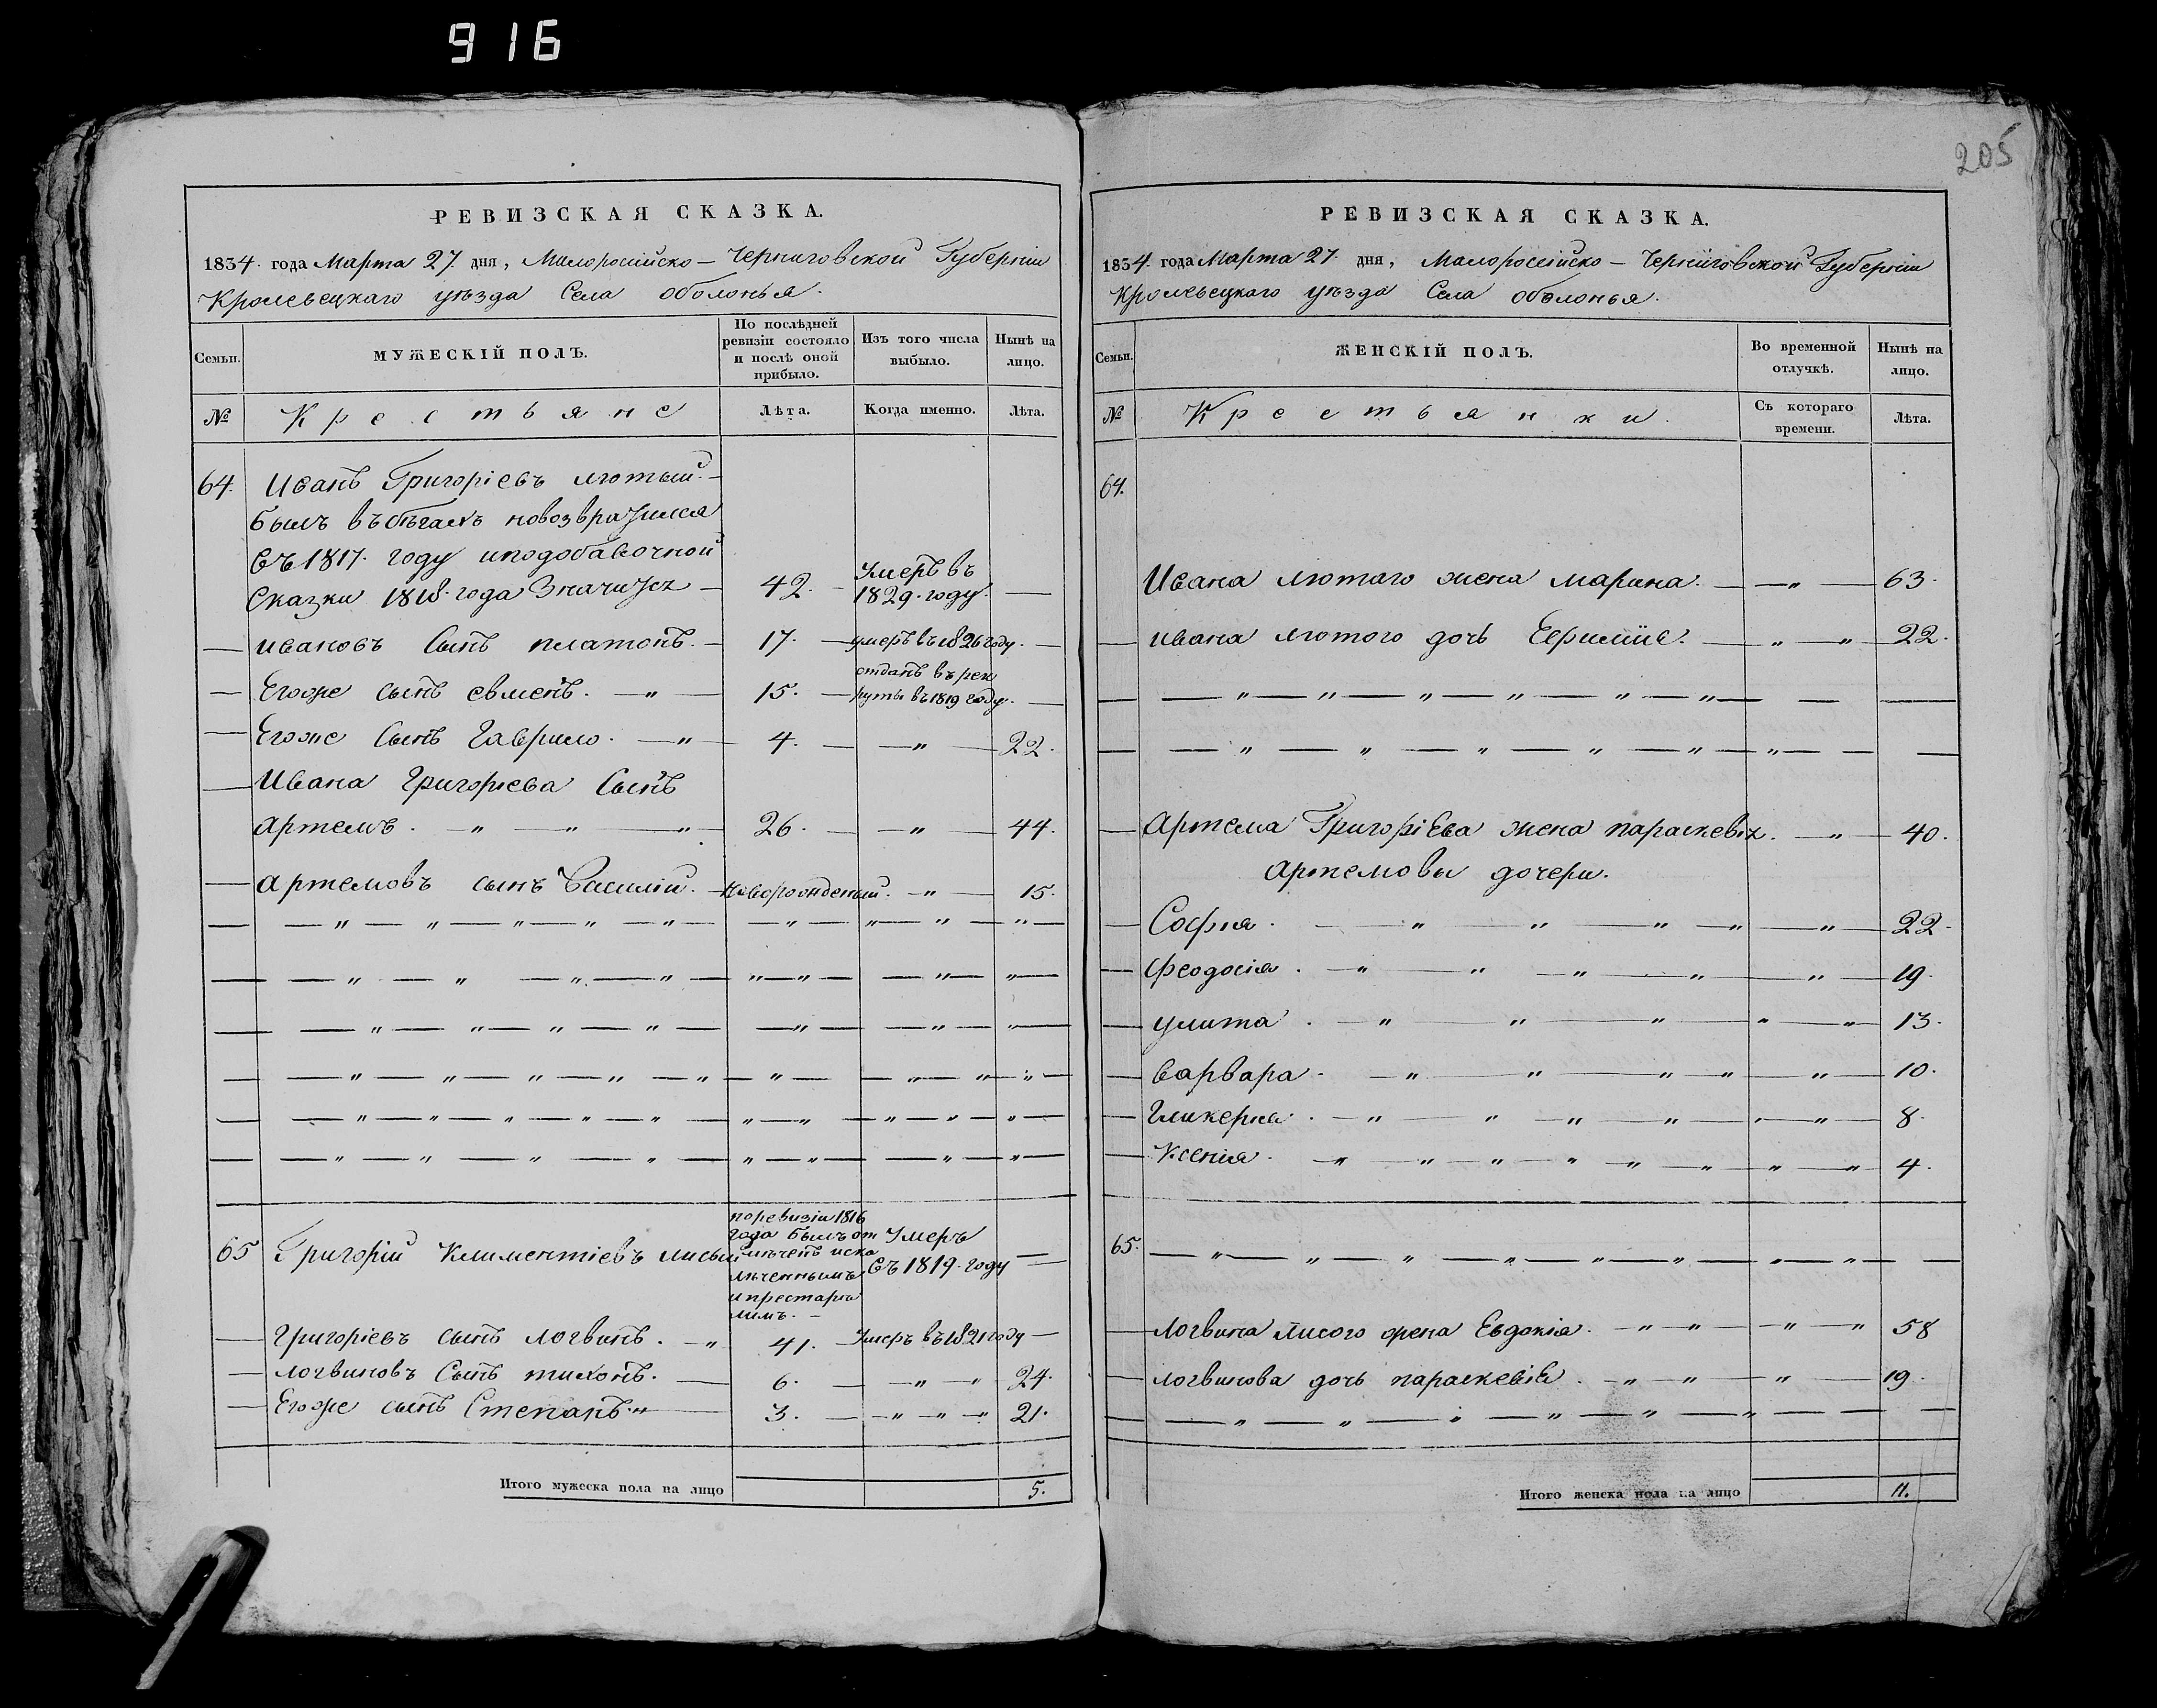 916
РЕВИЗСКАЯ СКАЗКА.
1834. года Марта 27. дня, Малоросийско – Черниговской Губерніи
Кролевецкаго уѣзда Села оболонья.
Семьи.
МУЖЕСКІЙ ПОЛЪ.
По послѣдней ревизіи состояло и послѣ оной прибыло.
Изъ того числа выбыло.
Нынѣ на лицо.
№
Крестьяне
Лѣта.
Когда именно.
Лѣта.
64. Иванъ Григоріевъ лютый. –
былъ въ бѣгахъ
въ 1817. году
Сказки 1818. года Значится – 42. – Умеръ въ 1829. году. —
— ивановъ Сынъ платонъ. – 17. — умеръ въ 1826 году. —
— Егоже сынъ евменъ. — „ — 15. — отданъ в рек руты въ 1819 году. —
— Егоже Сынъ Гаврило. — „ — 4. — — „ — 22.
— Ивана Григоріева Сынъ
Артемъ. — „ — „ — „ — 26. — — „ — 44.
— Артемовъ сынъ Василій. — Новорожденый. – „ — 15.
65 Григорій Климентіевъ лисый
по ревизіи 1816
года былъ от
мѣченъ иска
лѣченнымъ
и престарѣ
лымъ. –
Умеръ
въ 1819. году —
— Григоріевъ сынъ логвинъ. — „ 41. – Умеръ въ 1821 году —
— логвиновъ Сынъ тихонъ. — 6. — — „ – „ 24.
— Егоже сынъ Степанъ. „ — 3. — – „ – „ – „ 21.
Итого мужеска пола на лицо 5.
205
РЕВИЗСКАЯ СКАЗКА.
1834. года Марта 27. дня, Малоросийско – Черниговской Губерніи
Кролевецкаго уѣзда Села оболонья.
Семьи.
ЖЕНСКІЙ ПОЛЪ.
Во временной отлучкѣ.
Нынѣ на лицо.
№
Крестьянки.
Съ котораго времени.
Лѣта.
64.
Ивана лютаго жена марина. — — „ — 63.
— ивана лютого дочь Ефиміие. — „ — „ 22.
— Артема Григоріева жена параскевія. — „ — 40.
Артемовы дочери.
— Софія. — „ — „ — „ — „ — „ — 22.
— Феодосія. – „ — „ — „ — „ — „ — 19.
— улита. — „ — „ — „ — „ — „ 13.
— варвара. — „ — „ — „ „ — „ — 10.
— Гликерія. — „ — „ — „ — „ — „ — „ 8.
— Ксенія. — „ — „ — „ — „ — „ — „ 4.
65. — „ — „ — „ — „ — „ — „ — „ —
— логвина лисого жена Евдокія. – „ – „ — – „ – „ 58
— логвинова дочь параскевія. – „ – „ — „ — 19.
Итого женска пола на лицо 11.